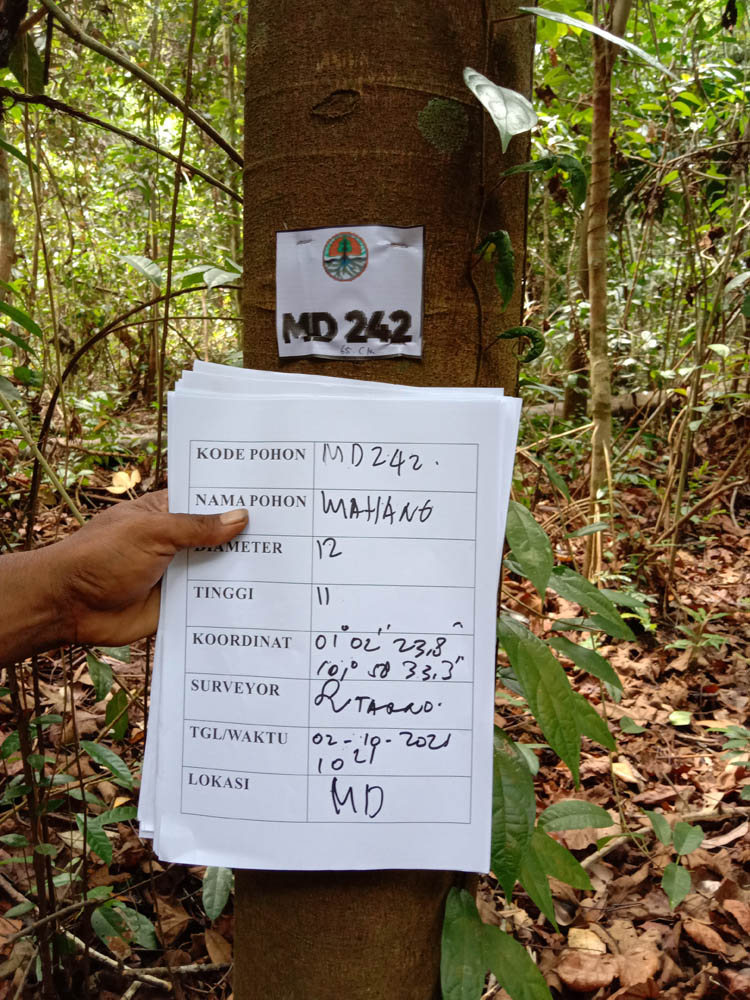 MD 242
65 CM
KODE POHON MD242.
NAMA POHON MAHANG
DIAMETER 12
TINGGI 11
KOORDINAT 01° 02' 23,8"
101° 50 33,3"
SURVEYOR
TGL/WAKTU 02-10-2021
1021
LOKASI MD